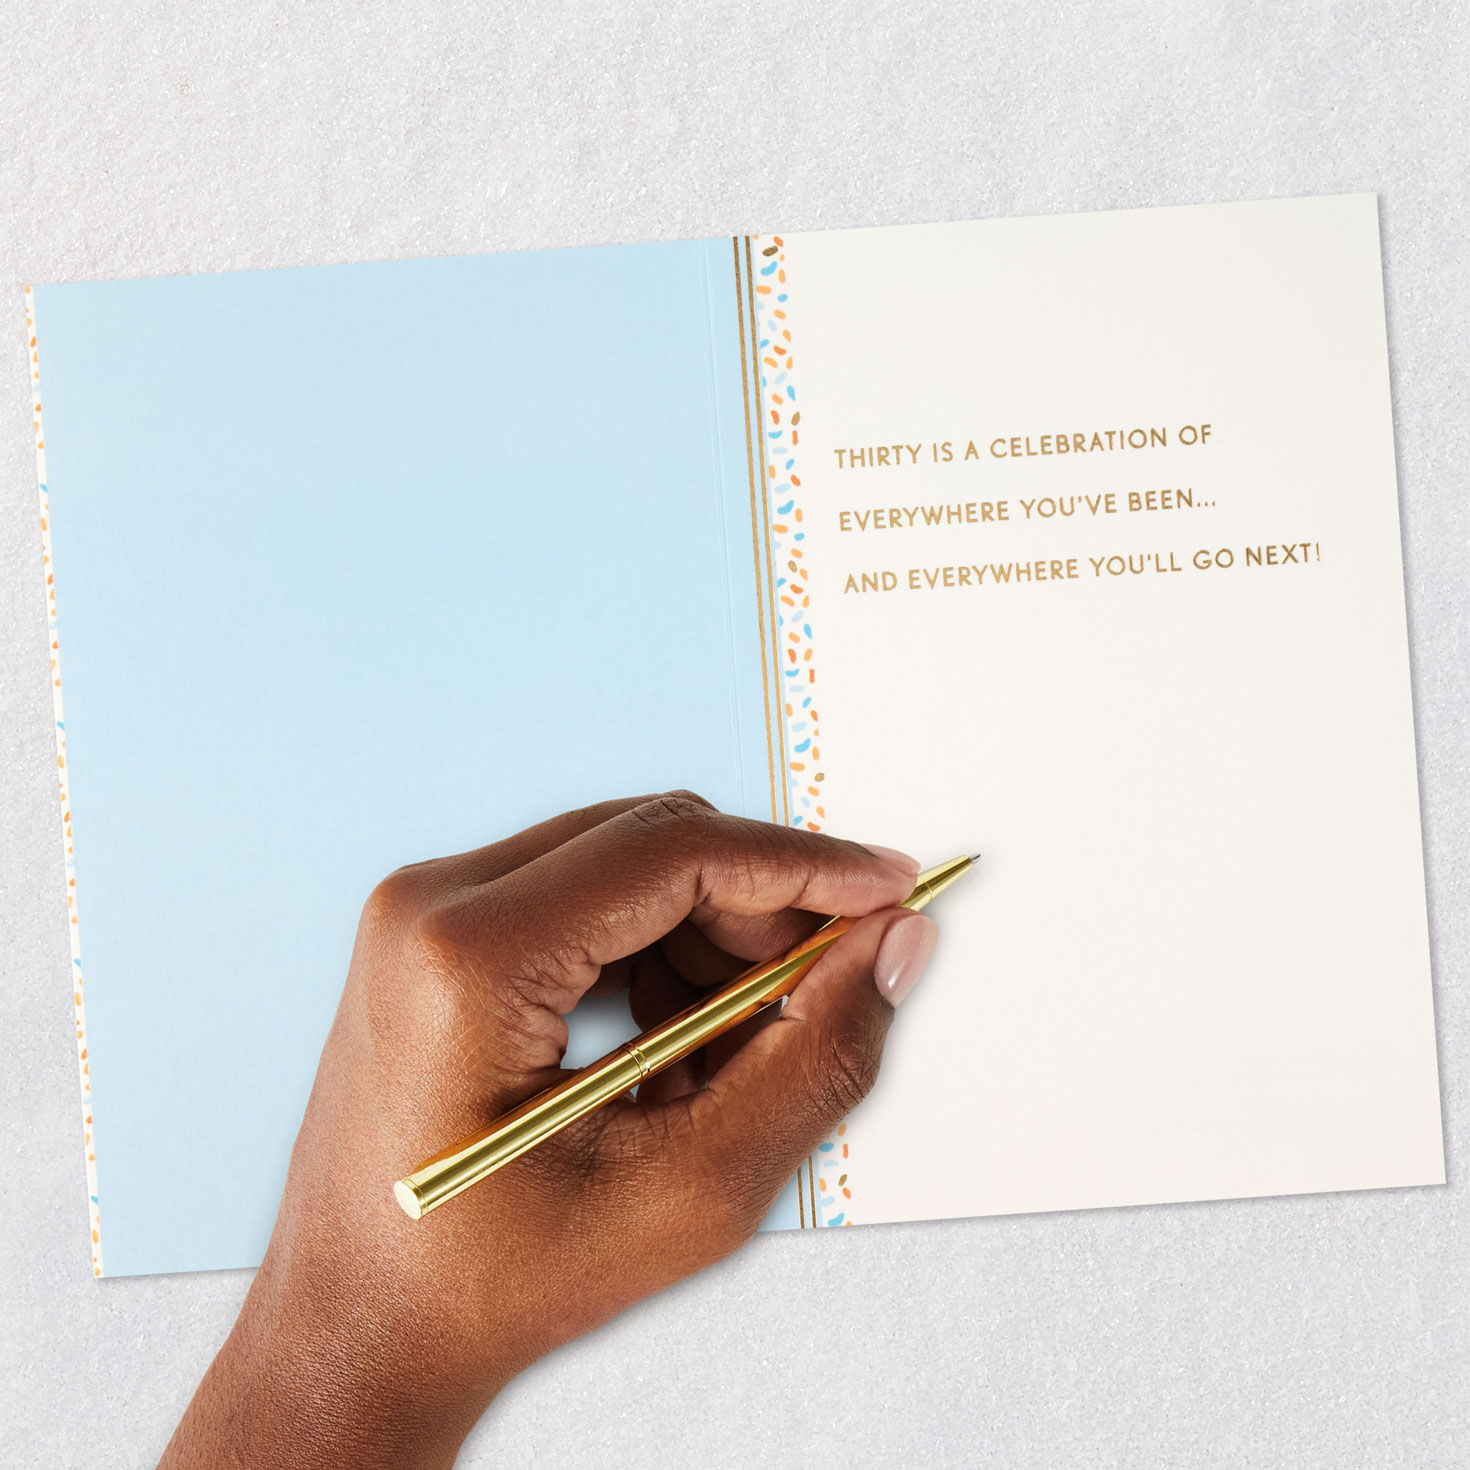 THIRTY IS A CELEBRATION OF
EVERYWHERE YOU'VE BEEN...
AND EVERYWHERE YOU'LL GO NEXT!